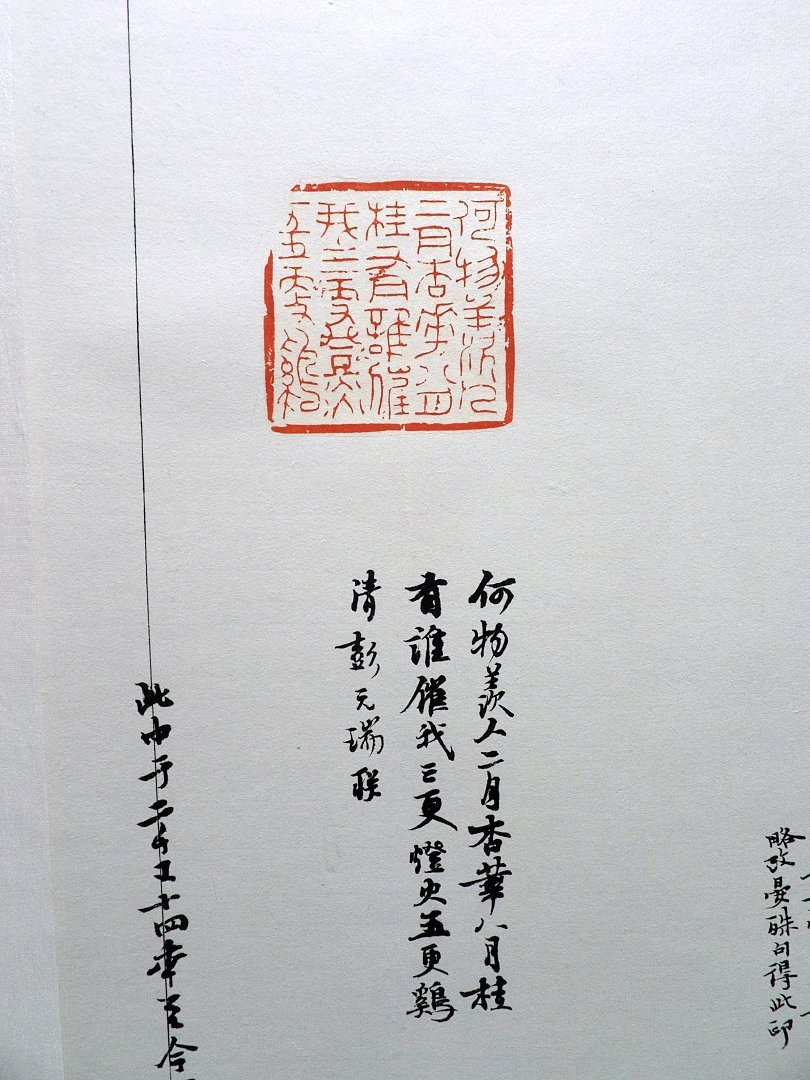 略改晏殊句得此印
何物羡人
二月杏華八月
桂有誰催
我三更燈火
五更鷄
何物羡人二月杏華八月桂
有誰催我三更燈火五更鷄
清彭元瑞联
此于二十四年至今